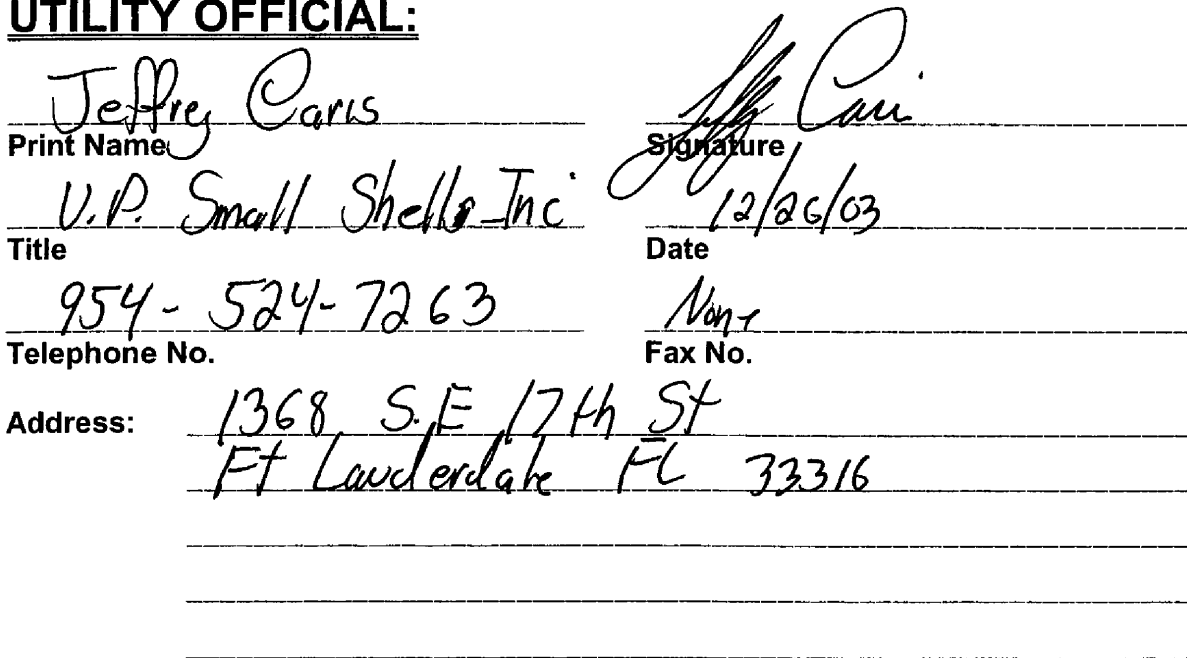 UTILITY OFFICIAL:
Jeffrey Caris
Print Name Signature
V.P. Small Shells Inc 12/26/03
Title Date
954-524-7263 None
Telephone No. Fax No.
Address: 1368 S.E 17th St
Ft Lauderdale FL 33316